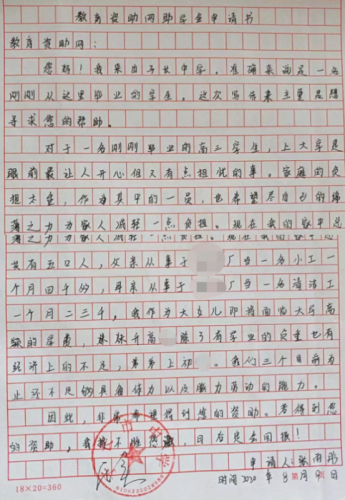 教育资助网助学金申请书
教育资助网:
您好!我来自子长中学,准确来的是一名
刚刚从这里毕业的学生。这次写信来主要是想
寻求您的帮助。
对于一名刚刚毕业的高三学生,上大学是
眼前最让人开心但又有点担忧的事。家庭的负
担太重,作为其中的一员,也希望尽自己的绵
薄之力为家人减轻一点负担。现在我的家中总
薄之力为家人减轻一点负担。现在我的家中总
共有五口人,父亲从事于 厂当一名小工一
个月四千多,母亲从事于 厂当一名清洁工
一个月二三千,我作为大女儿即将面临大学高
额的学费,妹妹升高 除了有学业的负重也有
经济上的不足,弟弟上初 。我们三个目前为
止还不足够具备体力以及脑力劳动的能力。
因此,非常希望得到您的资助。若得到您
的资助,我 不胜感激,日后定会回报!
申请人:张雨彤
时间2020年8月 日
18×20=360